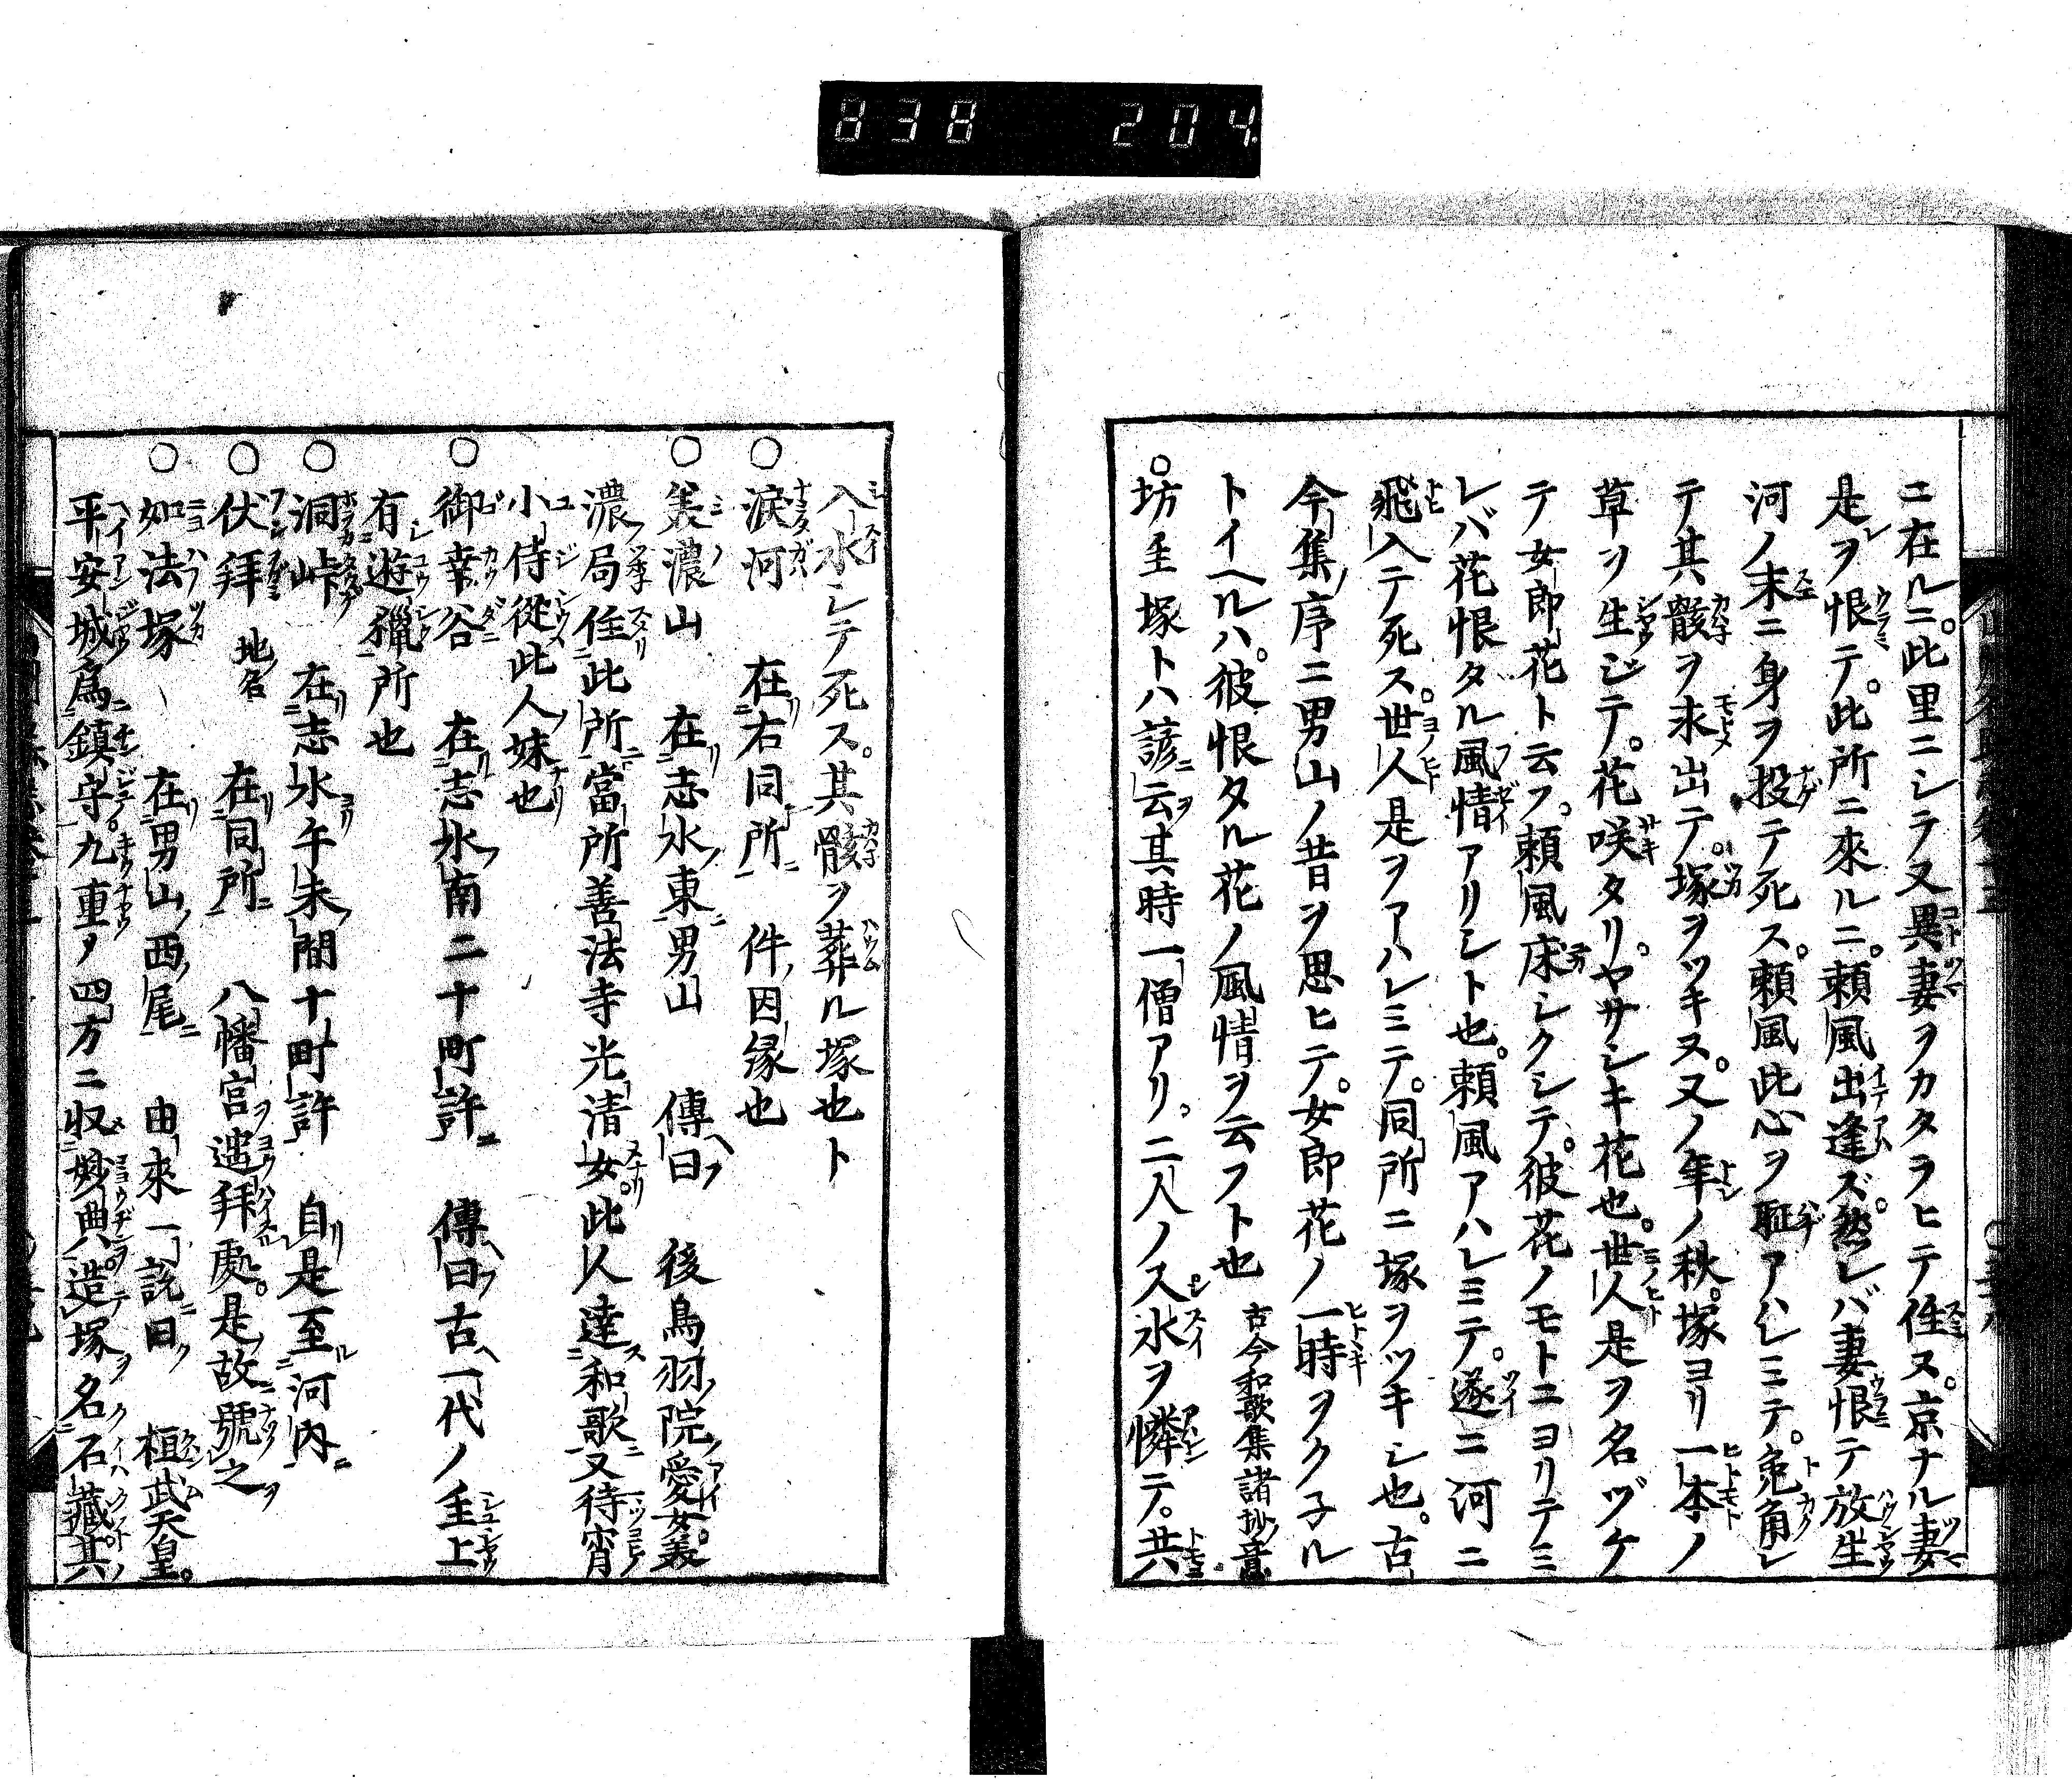 838 204
ニ在ルニ。此里ニシテ又異妻ヲカタラヒテ住ス。京ナル妻
是ヲ恨テ。此所ニ來ルニ。頼風出逢ズ。然レバ妻恨テ放生
河ノ末ニ身ヲ投テ死ス。頼風此心ヲ耻アハレミテ。兔角シ
テ其骸ヲ求出テ。塚ヲツキヌ。又ノ年ノ秋。塚ヨリ一本ノ
草ヲ生ジテ。花咲タリ。ヤサシキ花也。世人是ヲ名ヅケ
テ女郎花ト云フ。頼風床シクシテ。彼花ノモトニヨリテミ
レバ花恨タル風情アリシト也。頼風アハレミテ。遂ニ河ニ
飛入テ死ス。世人是ヲアハレミテ。同所ニ塚ヲツキシ也。古
今集ノ序ニ男山ノ昔ヲ思ヒテ。女郎花ノ一時ヲクネル
トイヘルハ。彼恨タル花ノ風情ヲ云フト也 古今和歌集諸抄ノ意
○坊主塚トハ諺云其時一僧アリ。二人ノ入水ヲ憐テ。共
入水シテ死ス。其骸ヲ葬ル塚也ト
○涙河 在右同所 件因縁也
○美濃山 在志水東男山 傳曰 後鳥羽院愛妾。美
濃局住此所當所善法寺光清女。此人達和歌又待宵
小侍從此人妹也
○御幸谷 在志水南二十町許 傳曰古一代ノ主上
有遊獵所也
○洞峠 在志水午未間十町許 自是至河内
○伏拜 地名 在同所 八幡宮遥拜處。是故號之
○如法塚 在男山西尾 由來一説曰 桓武天皇。
平安城爲鎮守。九重ノ四方ニ収妙典八造塚名石藏其